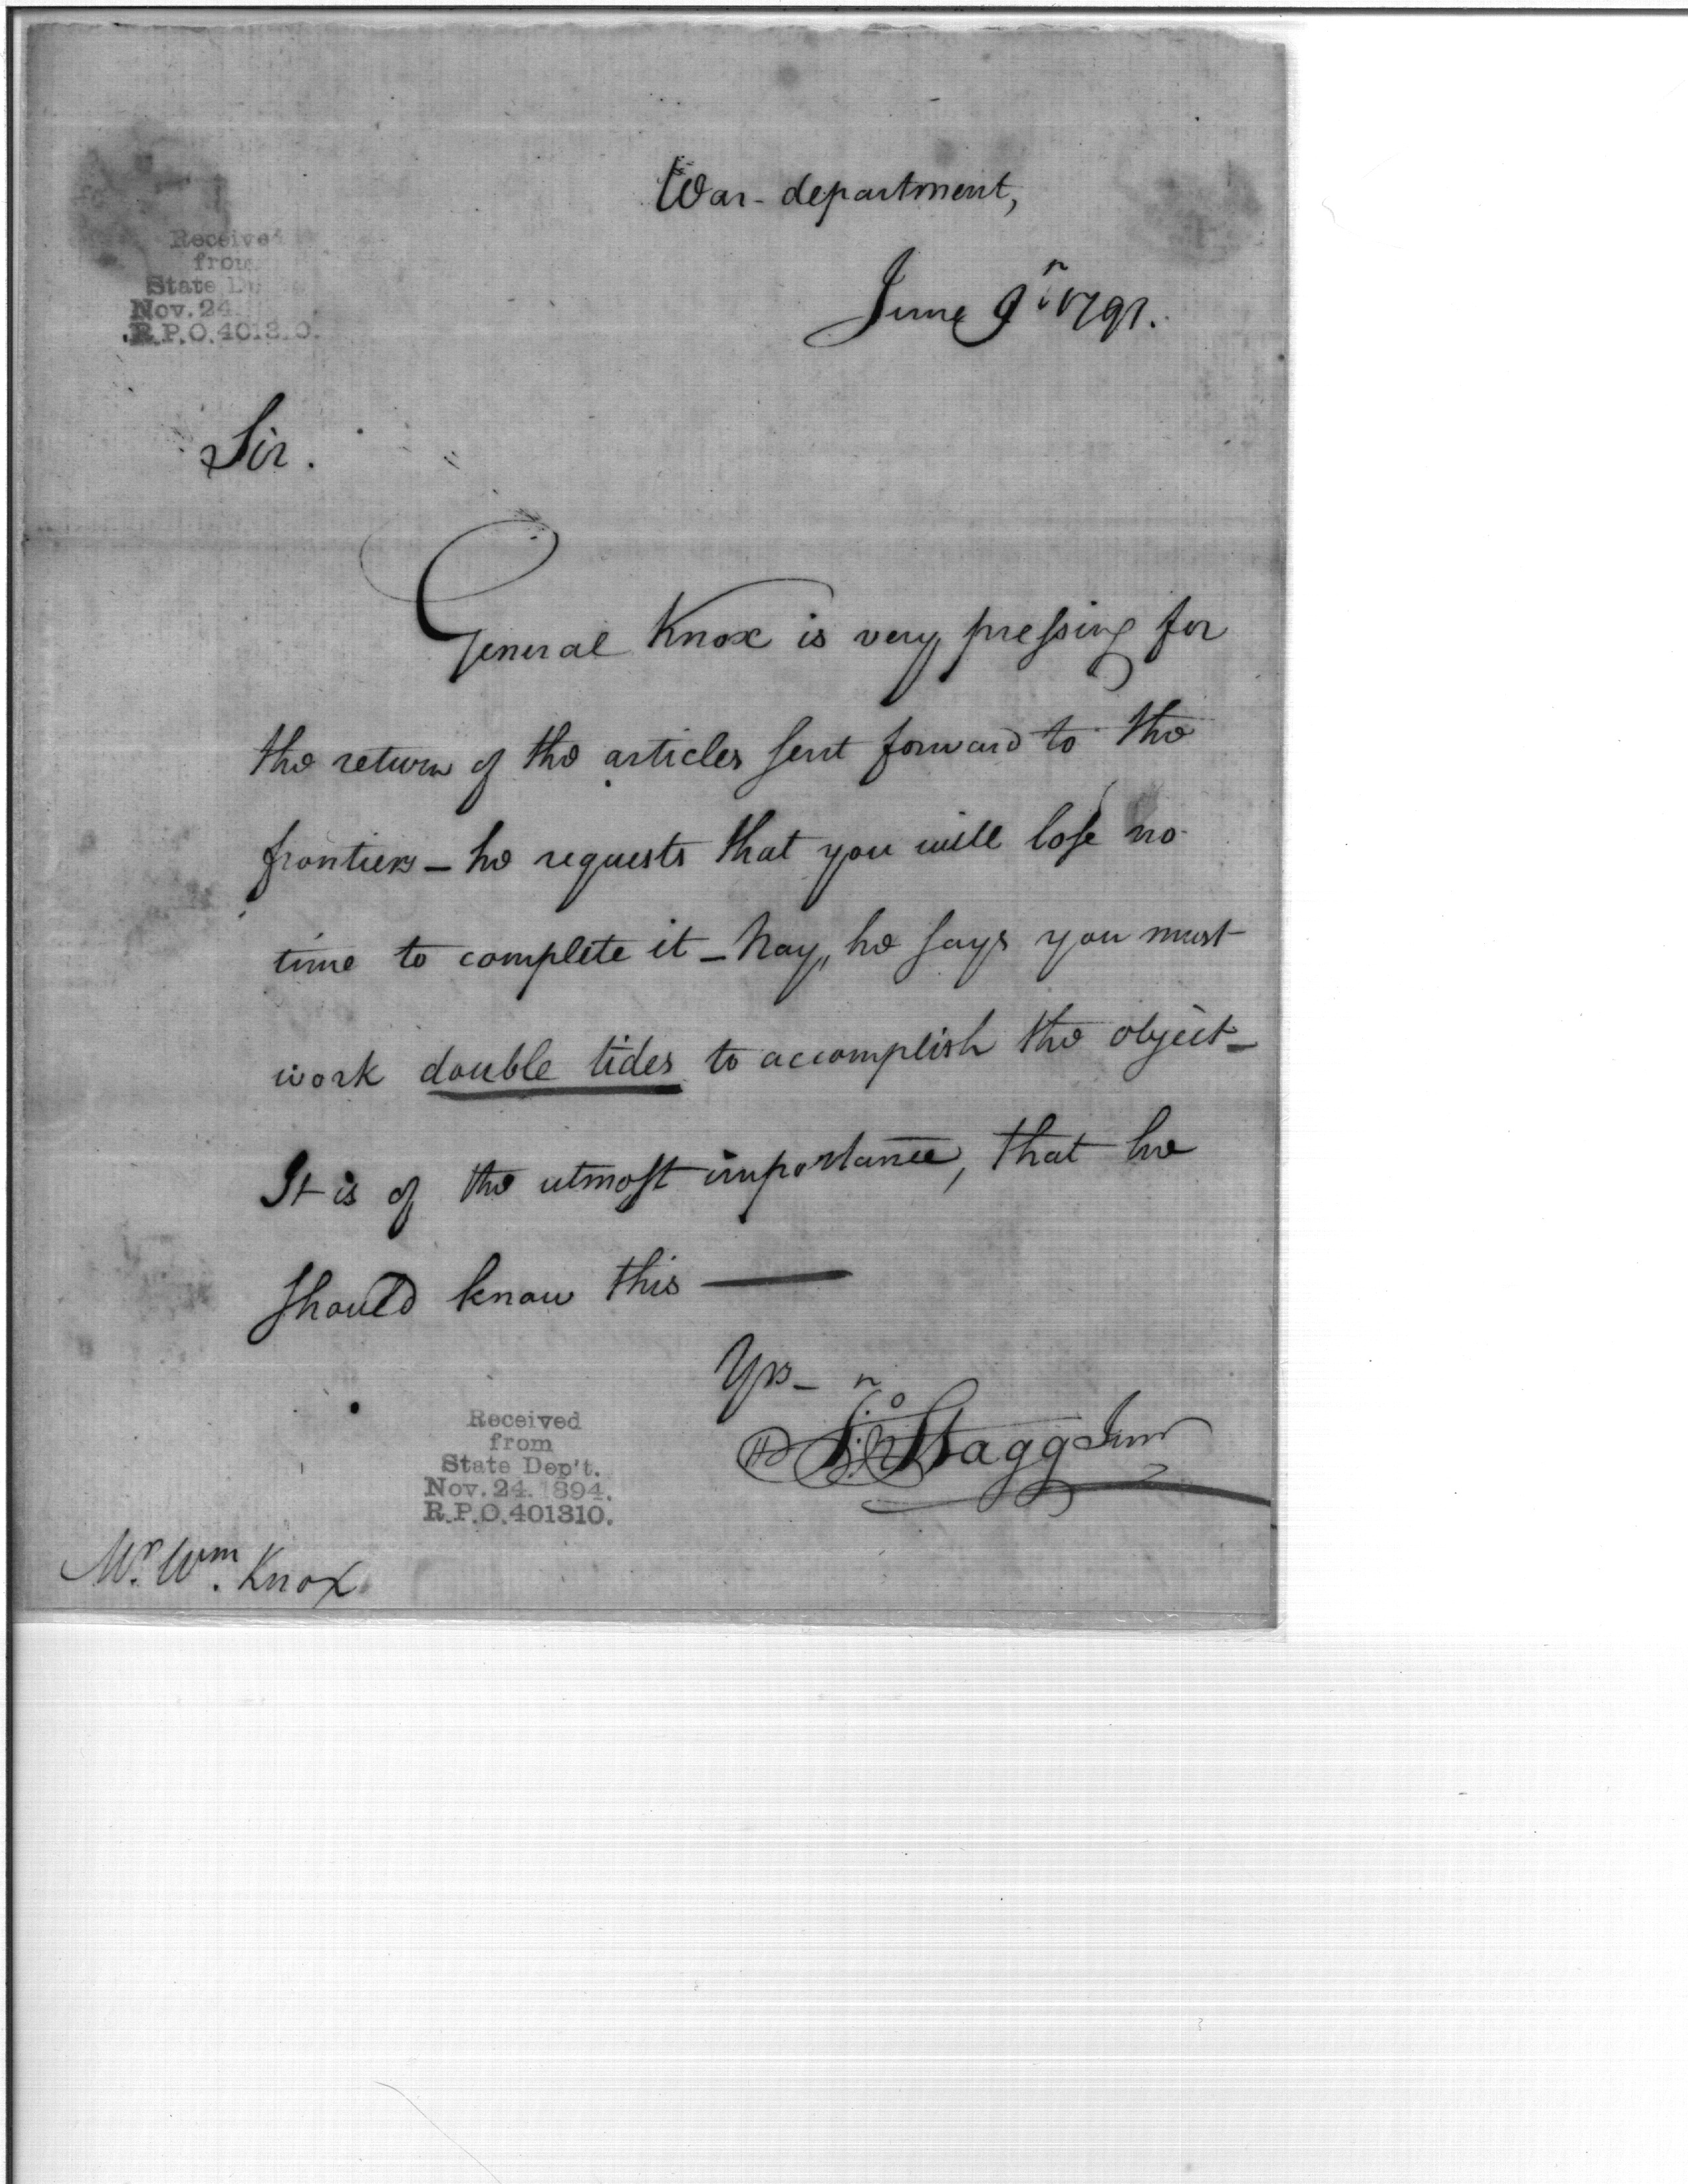 War-department,
June 9th 1791.
Received
from
State D
Nov. 24
R.P.O. 4013 0.
Sir.
General Knox is very pressing for
the return of the articles sent forward to the
frontiers - he requests that you will lose no
time to complete it - Nay, he says you must
work double tides to accomplish the object -
It is of the utmost importance, that he
should know this —
Yrs -
Jno Stagg Junr
Received
from
State Dep't.
Nov. 24. 1894.
R.P.O. 401310.
Mr. Wm. Knox